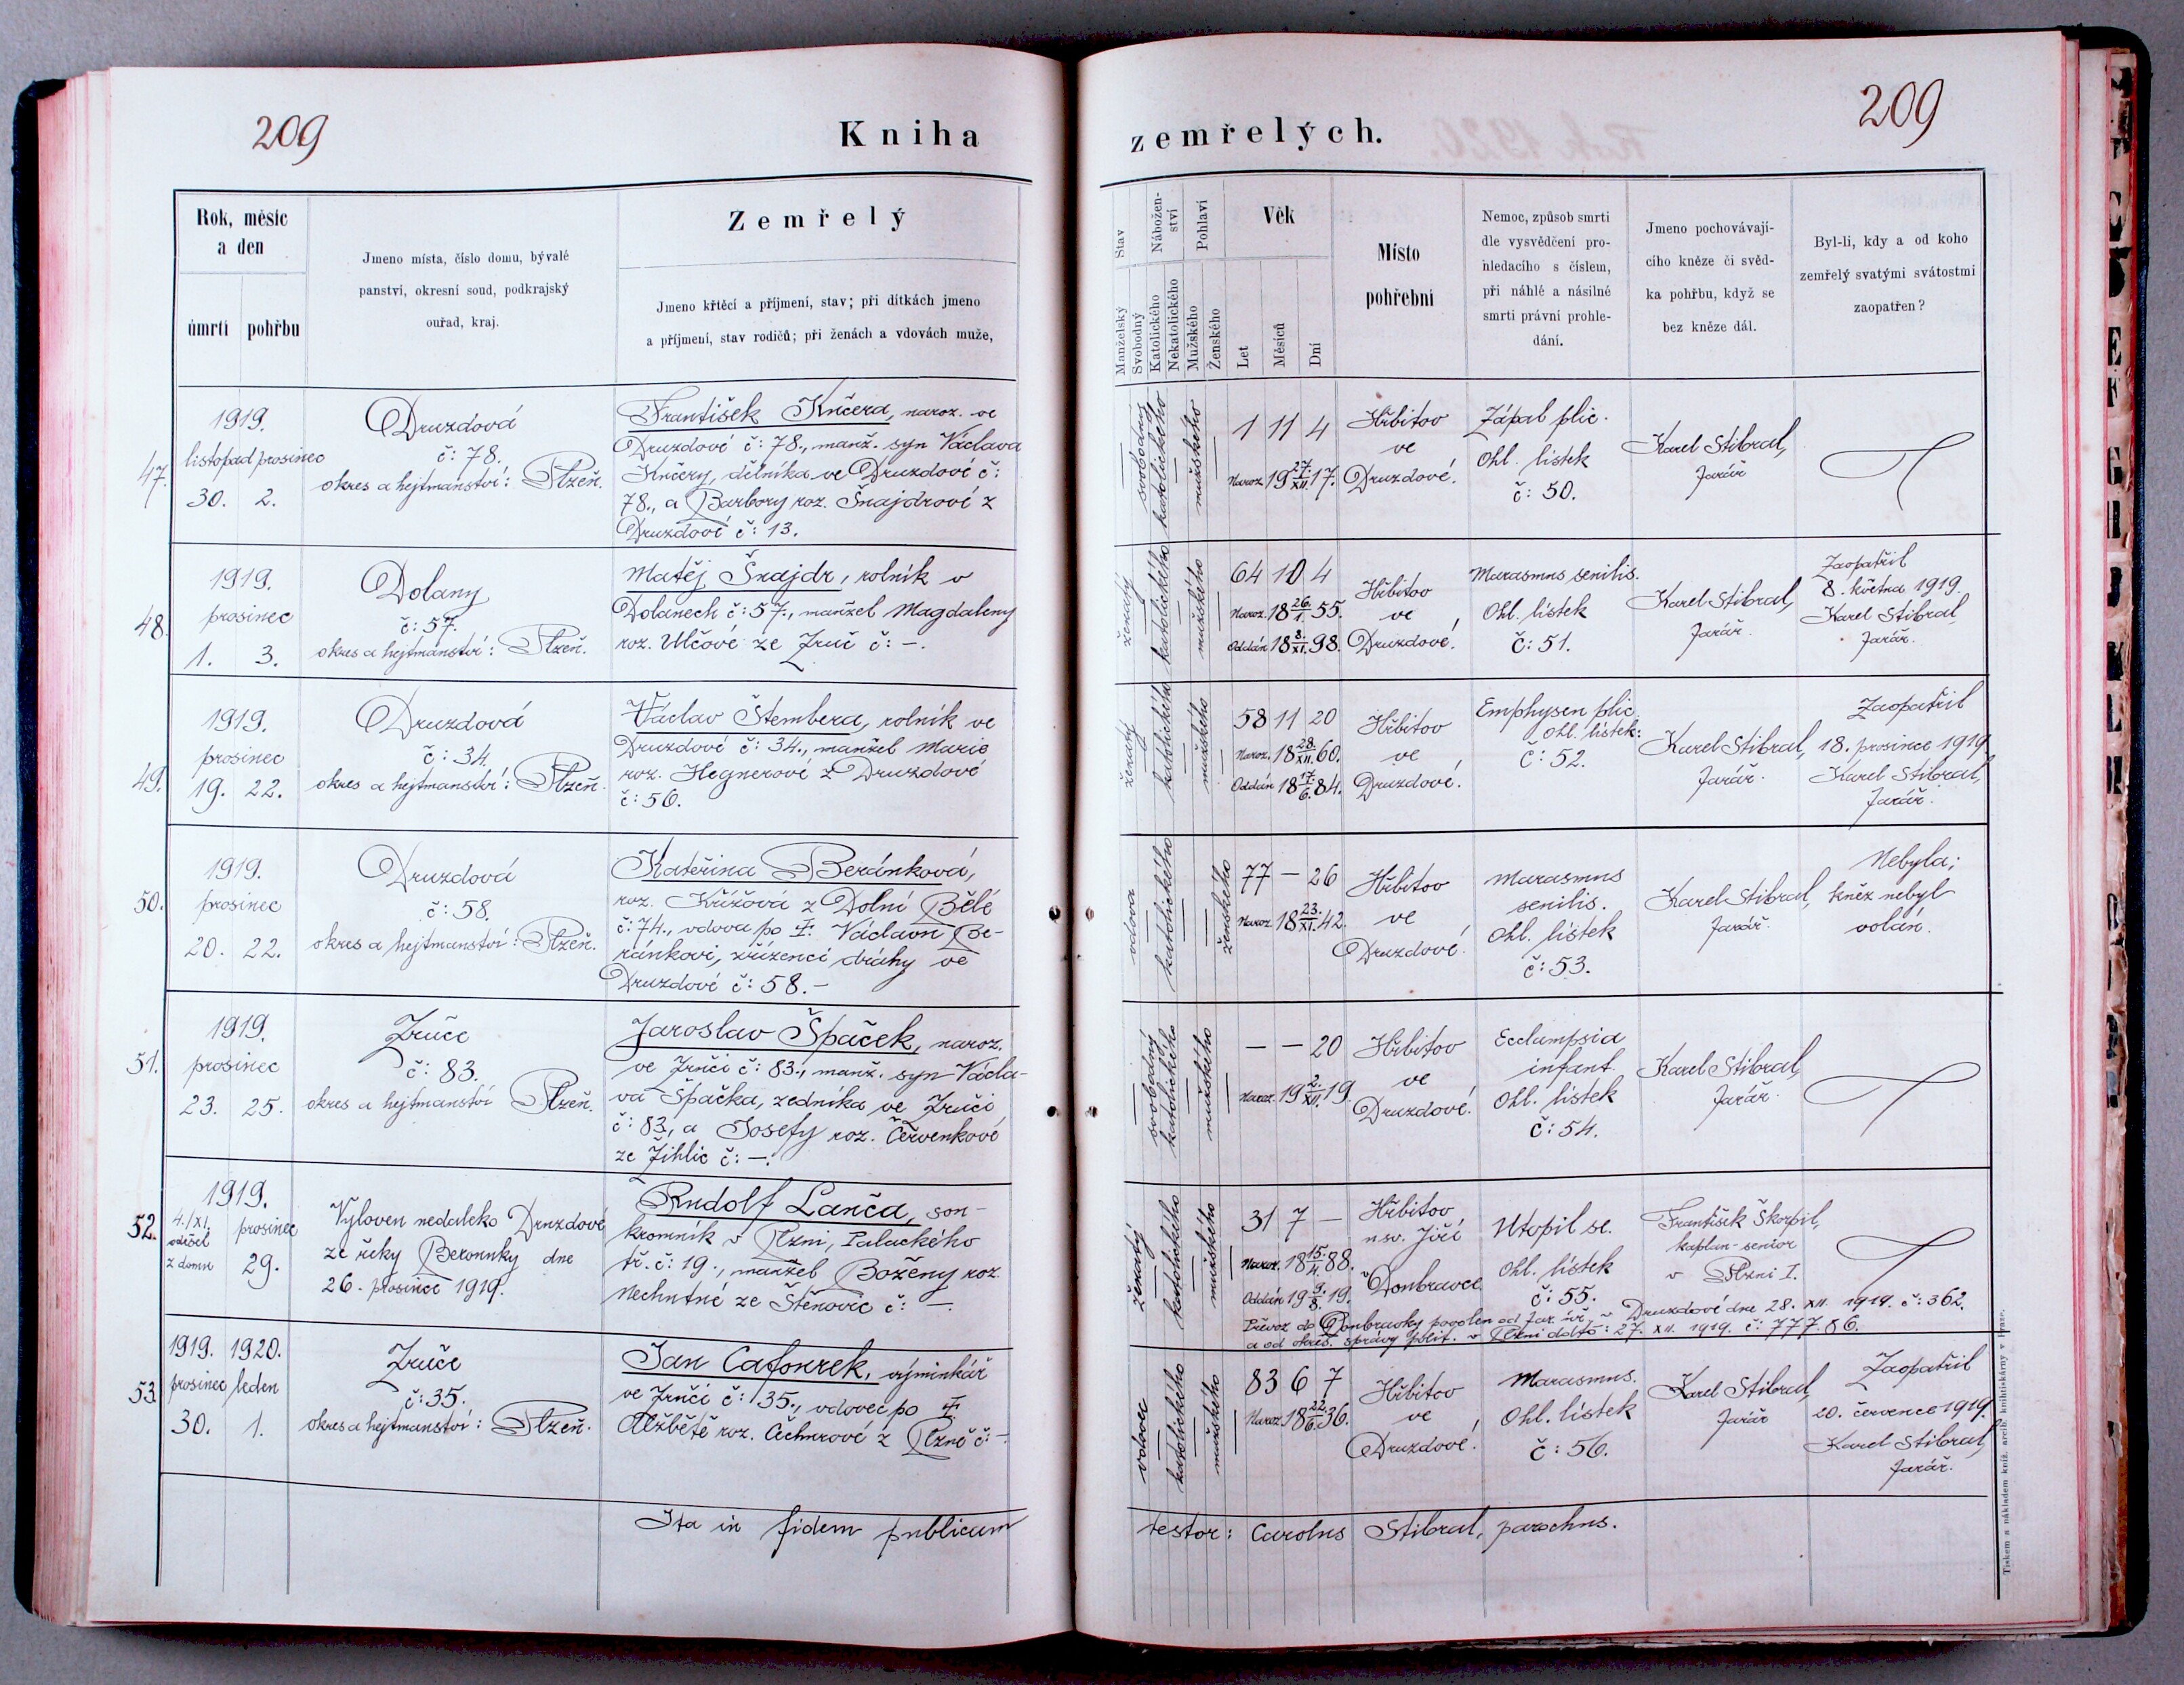 209
Kniha
Rok, měsíc
a den
úmrtí
pohřbu
Jmeno místa, číslo domu, bývalé
panství, okresní soud, podkrajský
ouřad, kraj.
Zemřelý
Jmeno křtěcí a příjmení, stav; při dítkách jmeno
a příjmení, stav rodičů; při ženách a vdovách muže,
47.
1919.
listopad prosinec
30. 2.
Druzdová
č: 78.
okres a hejtmanství: Plzeň.
František Kučera, naroz. ve
Druzdové č: 78., manž. syn Václava
Kučery, dělníka ve Druzdové č:
78., a Barbory roz. Šnajdrové z
Druzdové č: 13.
48.
1919.
prosinec
1. 3.
Dolany
č: 57.
okres a hejtmanství: Plzeň.
Matěj Šnajdr, rolník v
Dolanech č: 57., manžel Magdaleny
roz. Ulčové ze Zruč č: –.
49.
1919.
prosinec
19. 22.
Druzdová
č: 34.
okres a hejtmanství: Plzeň.
Václav Štembera, rolník ve
Druzdové č: 34., manžel Marie
roz. Hegnerové z Druzdové
č: 56.
50.
1919.
prosinec
20. 22.
Druzdová
č: 58.
okres a hejtmanství: Plzeň.
Kateřina Beránková,
roz. Křížová z Dolní Bělé
č: 74., vdova po ‡ Václavu Be-
ránkovi, zřízenci dráhy ve
Druzdové č: 58. –
51.
1919.
prosinec
23. 25.
Zruče
č: 83.
okres a hejtmanství Plzeň.
Jaroslav Špaček, naroz.
ve Zruči č: 83., manž. syn Václa-
va Špačka, zedníka ve Zruči
č: 83, a Josefy roz. Červenkové
ze Žihlic č: –.
52.
1919.
4./XI. prosinec
odešel
z domu 29.
Vyloven nedaleko Druzdové
ze řeky Berounky dne
26. prosince 1919.
Rudolf Lanča, sou-
kromník v Plzni, Palackého
tř. č: 19., manžel Boženy roz.
Nechutné ze Štěnovic č: –.
53.
1919. 1920.
prosinec leden
30. 1.
Zruče
č: 35.
okres a hejtmanství: Plzeň.
Jan Cafourek, výminkář
ve Zruči č: 35., vdovec po ‡
Alžbětě roz. Čechurové z Plzně č: –
Ita in fidem publicum
209
zemřelých.
Stav
Manželský
Svobodný
Nábožen-
ství
Katolického
Nekatolického
Pohlaví
Mužského
Ženského
Věk
Let
Měsíců
Dní
Místo
pohřební
Nemoc, způsob smrti
dle vysvědčení pro-
hledacího s číslem,
při náhlé a násilné
smrti právní prohle-
dání.
Jmeno pochovávají-
cího kněze či svěd-
ka pohřbu, když se
bez kněze dál.
Byl-li, kdy a od koho
zemřelý svatými svátostmi
zaopatřen?
svobodný
katolického
mužského
1 11 4
Naroz. 19 27./XII. 17.
Hřbitov
ve
Druzdové.
Zápal plic.
Ohl. lístek
č: 50.
Karel Stibral,
farář
ženatý
katolického
mužského
64 10 4
Naroz. 18 26./1. 55.
Oddán 18 8./XI. 98.
Hřbitov
ve
Druzdové.
Marasmus senilis.
Ohl. lístek
č: 51.
Karel Stibral,
farář.
Zaopatřil
8. května 1919.
Karel Stibral
farář.
ženatý
katolického
mužského
58 11 20
Naroz. 18 28./XII. 60.
Oddán 18 17./6. 84.
Hřbitov
ve
Druzdové.
Emphysen plic
ohl. lístek:
č: 52.
Karel Stibral,
farář.
Zaopatřil
18. prosince 1919
Karel Stibral,
farář.
vdova
katolického
ženského
77 – 26
Naroz. 18 23./XI. 42.
Hřbitov
ve
Druzdové.
Marasmus
senilis.
Ohl. lístek
č: 53.
Karel Stibral,
farář.
Nebyla;
kněz nebyl
volán.
svobodný
katolického
mužského
– – 20
Naroz. 19 2./XII. 19.
Hřbitov
ve
Druzdové.
Ecclampsia
infant.
Ohl. lístek
č: 54.
Karel Stibral,
farář.
ženatý
katolického
mužského
31 7 –
Naroz. 18 15./4. 88.
Oddán 19 9./8. 19.
Hřbitov
u sv. Jiří
Doubravce
Utopil se.
Ohl. lístek
č: 55.
František Škorpil,
kaplan-senior
v Plzni I.
Převoz do Doubravky povolen od far. úř. v Druzdové dne 28. XII. 1919. č: 362.
a od okres. správy polit. v Plzni ddto: 27. XII. 1919. č: 777.86.
vdovec
katolického
mužského
83 6 7
Naroz. 18 22./6. 36.
Hřbitov
ve
Druzdové.
Marasmus.
Ohl. lístek
č: 56.
Karel Stibral,
farář
Zaopatřil
20. července 1919.
Karel Stibral,
farář.
testor: Carolus Stibral, parochus.
Tiskem a nákladem kníž. arcib. knihtiskárny v Praze.